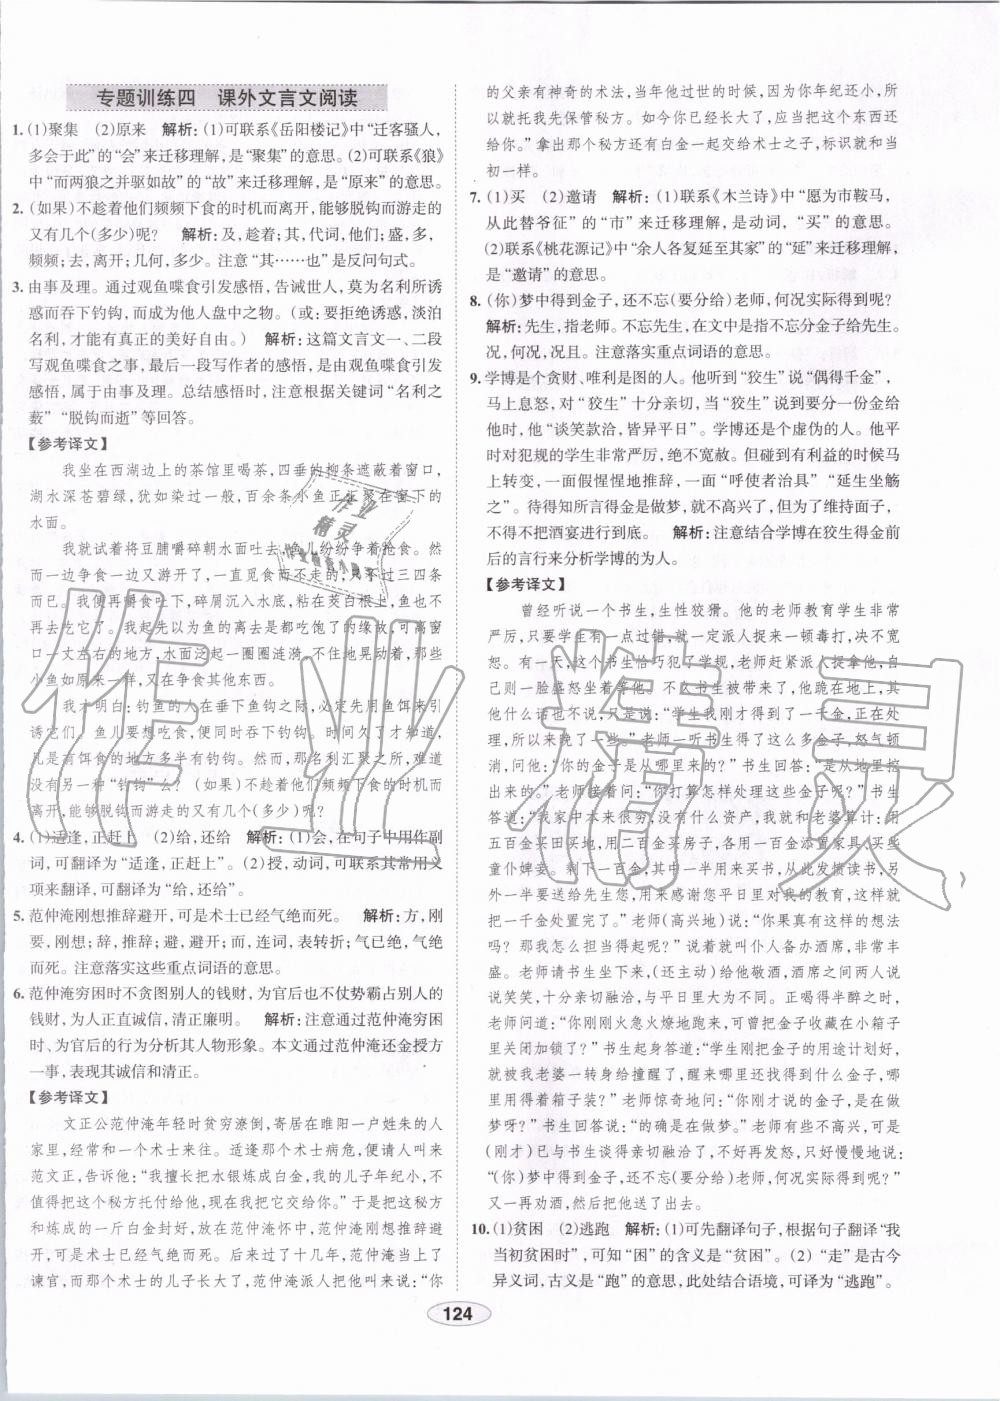 专题训练四 课外文言文阅读
1. (1)聚集 (2)原来 解析：(1)可联系《岳阳楼记》中“迁客骚人，
多会于此”的“会”来迁移理解，是“聚集”的意思。(2)可联系《狼》
中“而两狼之并驱如故”的“故”来迁移理解，是“原来”的意思。
2. (如果)不趁着他们频频下食的时机而离开，能够脱钩而游走的
又有几个(多少)呢？ 解析：及，趁着；其，代词，他们；盛，多，
频频；去，离开；几何，多少。注意“其……”是反问句式。
3. 由事及理。通过观鱼喋食引发感悟，告诫世人，莫为名利所诱
惑而吞下钓钩，而成为他人盘中之物。(或：要拒绝诱惑，淡泊
名利，才能有真正的美好自由。) 解析：这篇文言文一、二段
写观鱼喋食之事，最后一段写作者的感悟，是由观鱼喋食引发
感悟，属于由事及理。总结感悟时，注意根据关键词“名利之
薮”“脱钩而逝”等回答。
【参考译文】
我坐在西湖边上的茶馆里喝茶，四垂的柳条遮蔽着窗口，
湖水深苍碧绿，犹如染过一般，百余条小鱼正汇聚在窗下的
水面。
我就试着将豆脯嚼碎朝水面吐去，鱼儿纷纷争着抢食。然
而一边争食一边又游开了，一直觅食而不走的，只不过三四条
而已。我便再嚼食吐下，碎屑沉入水底，粘在茭白根上，鱼也不
再去吃它了。我起先以为鱼的离去是都吃饱了的缘故，可离窗
口一丈左右的地方，水面泛起一圈圈涟漪，不住地晃动着，那些
小鱼如原来一样，又在争食其他东西。
我才明白：钓鱼的人在垂下鱼钩之际，必定先用鱼饵来引
诱它们，鱼儿要想吃食，便同时吞下钓钩。时间久了才机灵了，
知道凡是有饵食的地方多半有钓钩。然而，那名利汇聚之所，难道
没有另一种“钓钩”么？(如果)不趁着他们频频下食的时机
而离开，能够脱钩而游走的又有几个(多少)呢？
4. (1)适逢，正赶上 (2)给，还给 解析：(1)会，在句子中用作副
词，可翻译为“适逢，正赶上”。(2)授，动词，可联系其常用义
项来翻译，可翻译为“给，还给”。
5. 范仲淹刚想推辞避开，可是术士已经气绝而死。 解析：方，刚
要，刚想；辞，推辞；避，避开；而，连词，表转折；气已绝，气绝
而死。注意落实这些重点词语的意思。
6. 范仲淹穷困时不贪图别人的钱财，为官后也不仗势霸占别人的
钱财，为人正直诚信，清正廉明。 解析：注意通过范仲淹穷困
时、为官后的行为分析其人物形象。本文通过范仲淹还金授方
一事，表现其诚信和清正。
【参考译文】
文正公范仲淹年轻时贫穷潦倒，寄居在睢阳一户姓朱的人
家里，经常和一个术士来往。适逢那个术士病危，便请人叫来
范文正，告诉他：“我擅长把水银炼成白金，我的儿子年纪小，不
值得把这个秘方托付给他，现在我把它交给你。”于是把这秘方
和炼成的一斤白金封好，放在范仲淹怀中，范仲淹刚想推辞避
开，可是术士已经气绝而死。后来过了十几年，范仲淹当上了
谏官，而当年那个术士的儿子长大了，范仲淹把他叫来说：“你
的父亲有神奇的术法，当年他过世的时候，因为你年纪还小，所
以就托我先保管秘方。如今你已经长大了，应当把这个东西还
给你。”拿出那个秘方还有白金一起交给术士之子，标识就和当
初一样。
7. (1)买 (2)邀请 解析：(1)联系《木兰诗》中“愿为市鞍马，
从此替爷征”的“市”来迁移理解，是动词，“买”的意思。
(2)联系《桃花源记》中“余人各复延至其家”的“延”来迁移理解，
是“邀请”的意思。
8. (你)梦中得到金子，还不忘(要分给)老师，何况实际得到呢？
解析：先生，指老师。不忘先生，在文中是指不忘分金子给先生。
况，何况，况且。注意落实重点词语的意思。
9. 学博是个贪财、唯利是图的人。他听到“狡生”说“偶得千金”，
马上息怒，对“狡生”十分亲切，当“狡生”说到要分一份金给
他时，他“谈笑款洽，皆异平日”。学博还是个虚伪的人。他平
时对犯规的学生非常严厉，绝不宽赦。但想到有利益的时候马
上转变，一面“假惺惺地推辞”，一面“呼使者治具”“延生坐觞
之”。待得知所言得金是做梦，就大不高兴了，但还是言不由衷，
不得不把酒宴进行到底。 解析：注意结合学博在狡生得金前
后的言行来分析学博的为人。
【参考译文】
曾经听说一个书生，生性狡猾。他的老师教育学生非常
严厉，只要学生有一点过错，就一定派人捉来一顿毒打，决不宽
恕。有一天，这个书生恰巧犯了学规，老师赶紧派人捉拿他，自
己则一脸盛怒坐着等他。不久书生被带来了，他跪在地上，其
他什么话也不说，只是说：“学生我刚才得到了一千金，正在处
理，所以来晚了一些。”老师一听书生得了这么多金子，怒气顿
消，问他：“你的金子是从哪里来的？”书生回答：“是从地里
挖出来的。”老师接着问：“你打算怎样处理这些金子？”书生
答道：“我家中本来很穷，没有什么资产，我和老婆计算：用
五百金买田买地，用二百金买房，一百金添置家具，一百金买
童仆婢妾。剩下一百金，一半用来买书，从此发愤读书，另一
半赠送给先生您，用来感谢您平日里对我的教育，这样就
把一千金处置完了。”老师(高兴地)说：“你果真有这样的想法
吗？那我怎么担当得起呢？”说着就叫仆人备办酒席，非常丰
盛。老师请书生坐下来，(还主动)给他敬酒，酒席之间两人说
说笑笑，十分亲切融洽，与平日大不同。正喝得半醉之时，
老师问道：“你刚刚火急火燎地跑来，可曾把金子收藏在小箱子
里关闭加锁了？”书生起身答道：“学生刚把金子的用途计划好，
就被老婆一转身给撞醒了，醒来时，金子已不知哪里去了，还
用得着箱子装？”老师惊奇地问：“你刚才说的金子，是在做
梦呀？”书生回答说：“的确是在做梦。”老师有些不高兴，可是
(刚才)已与书生谈得亲切融洽了，不好再发怒，就慢慢地说：
“(你)梦中得到金子，还不忘(要分给)老师，何况实际得到呢？”
又一再劝酒，然后把他送了出去。
10. (1)贫困 (2)逃跑 解析：(1)可先翻译句子，根据句子翻译“我
当初贫困时”，可知“困”的含义是“贫困”。(2)“走”是古今
异义词，古义是“跑”的意思，此处结合语境，可译为“逃跑”。
124
作业
精灵
作业精灵